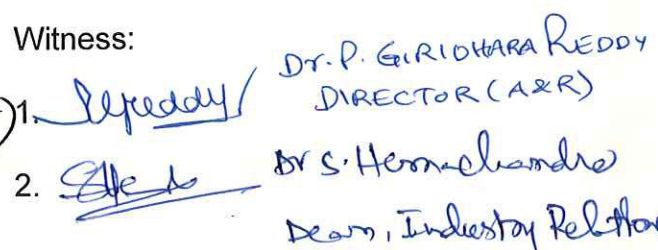 Witness:
1. Dr. P. GIRIDHARA REDDY
DIRECTOR (A&R)
2. Dr S. Hemachandra
Dean, Industry Relation